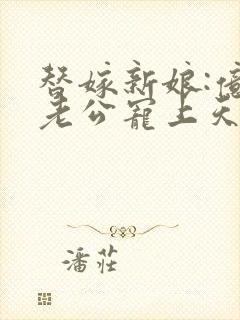 替嫁新娘:億
老公寵上天
潘莊